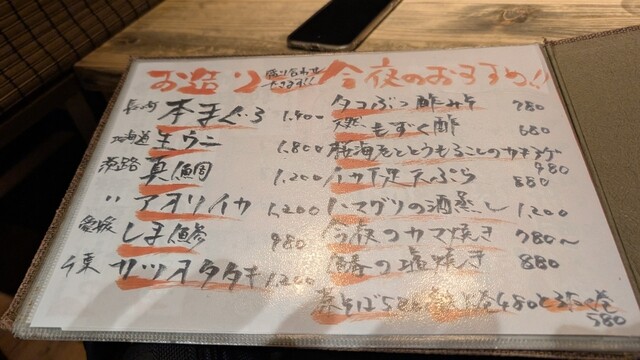 お造り 盛り合わせ できます!!
長崎 本まぐろ 1,400
北海道 生ウニ 1,800
淡路 真鯛 1,200
〃 アオリイカ 1,200
愛媛 しま鯵 980
カツオタタキ 1,200
今夜のおすすめ!!
タコぶつ酢みそ 780
天然もずく酢 680
桜海老ととうもろこしのかき揚げ 980
イカ下足天ぷら 880
ハマグリの酒蒸し 1,200
今夜のカマ焼き 780〜
塩焼き 880
茶そば580 480 とろたく巻 580